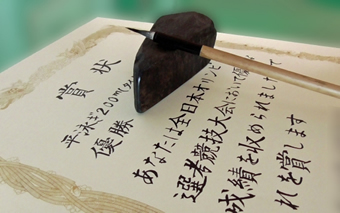 賞状
平泳ぎ200m
優勝
あなたは全日本オリンピ
選考競技大会において
成績を収められまし
れを賞します